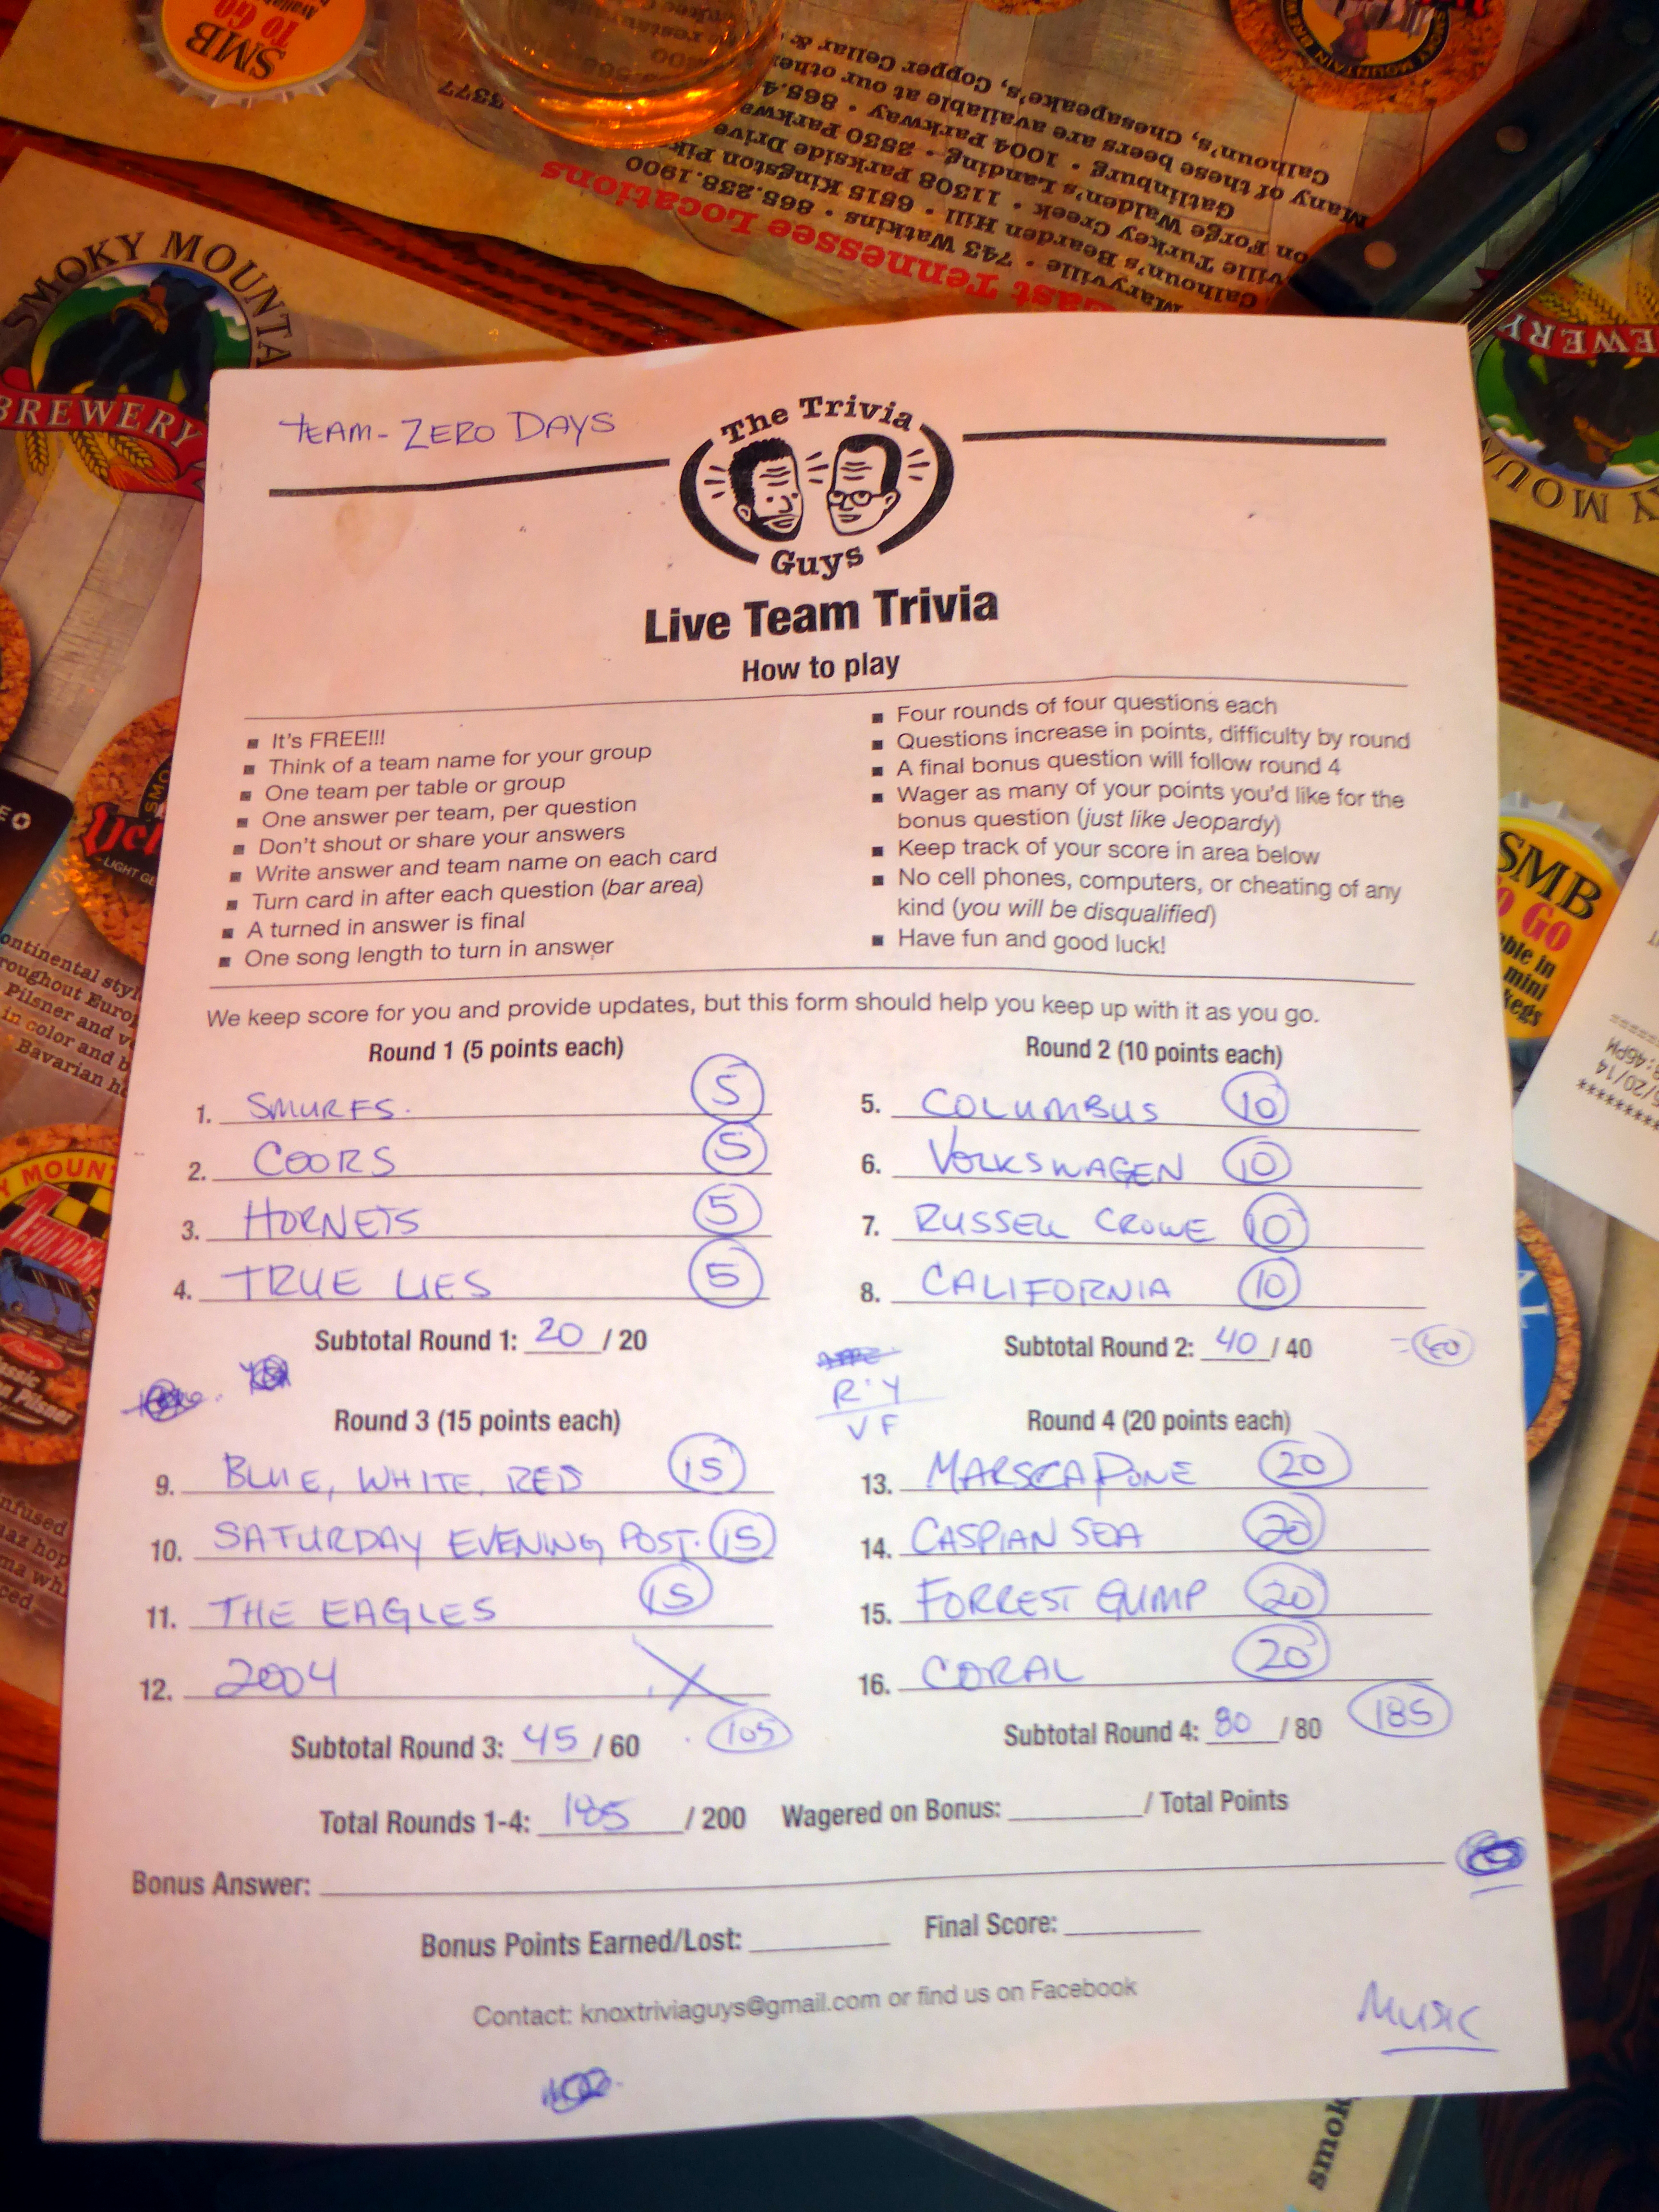 SMB
TO GO
4377
Many of these beers are available at our other
Calhoun's, Chesapeake's, Copper Cellar &
Gatlinburg • 1004 Parkway • 865.4
East Tennessee Locations
SMOKY MOUNTA
BREWERY
EWERY
TEAM - ZERO DAYS
The Trivia
Guys
Live Team Trivia
How to play
It's FREE!!!
Think of a team name for your group
One team per table or group
One answer per team, per question
Don't shout or share your answers
Write answer and team name on each card
Turn card in after each question (bar area)
A turned in answer is final
One song length to turn in answer
Four rounds of four questions each
Questions increase in points, difficulty by round
A final bonus question will follow round 4
Wager as many of your points you'd like for the
bonus question (just like Jeopardy)
Keep track of your score in area below
No cell phones, computers, or cheating of any
kind (you will be disqualified)
Have fun and good luck!
We keep score for you and provide updates, but this form should help you keep up with it as you go.
Round 1 (5 points each)
1. SMURFS. 5
2. COORS 5
3. HORNETS 5
4. TRUE LIES 5
Subtotal Round 1: 20 / 20
Round 2 (10 points each)
5. COLUMBUS 10
6. VOLKSWAGEN 10
7. RUSSELL CROWE 10
8. CALIFORNIA 10
Subtotal Round 2: 40 / 40 = 60
R·Y
VF
Round 3 (15 points each)
9. BLUE, WHITE, RED 15
10. SATURDAY EVENING POST. 15
11. THE EAGLES 15
12. 2004 X
Subtotal Round 3: 45 / 60 105
Round 4 (20 points each)
13. MARSCAPONE 20
14. CASPIAN SEA 20
15. FORREST GUMP 20
16. CORAL 20
Subtotal Round 4: 80 / 80 185
Total Rounds 1-4: 185 / 200 Wagered on Bonus: / Total Points
Bonus Answer:
Bonus Points Earned/Lost: Final Score:
Contact: knoxtriviaguys@gmail.com or find us on Facebook
MUSIC
SMB
GO
mini
kegs